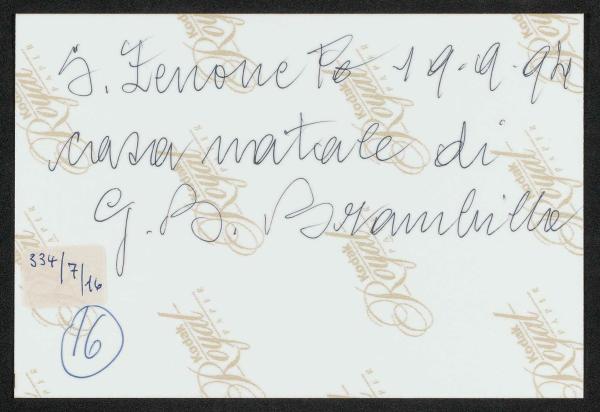 S. Zenone Po 19-9-94
casa natale di
G. B. Brambilla
334/7/16
16
Kodak
Royal
PAPER